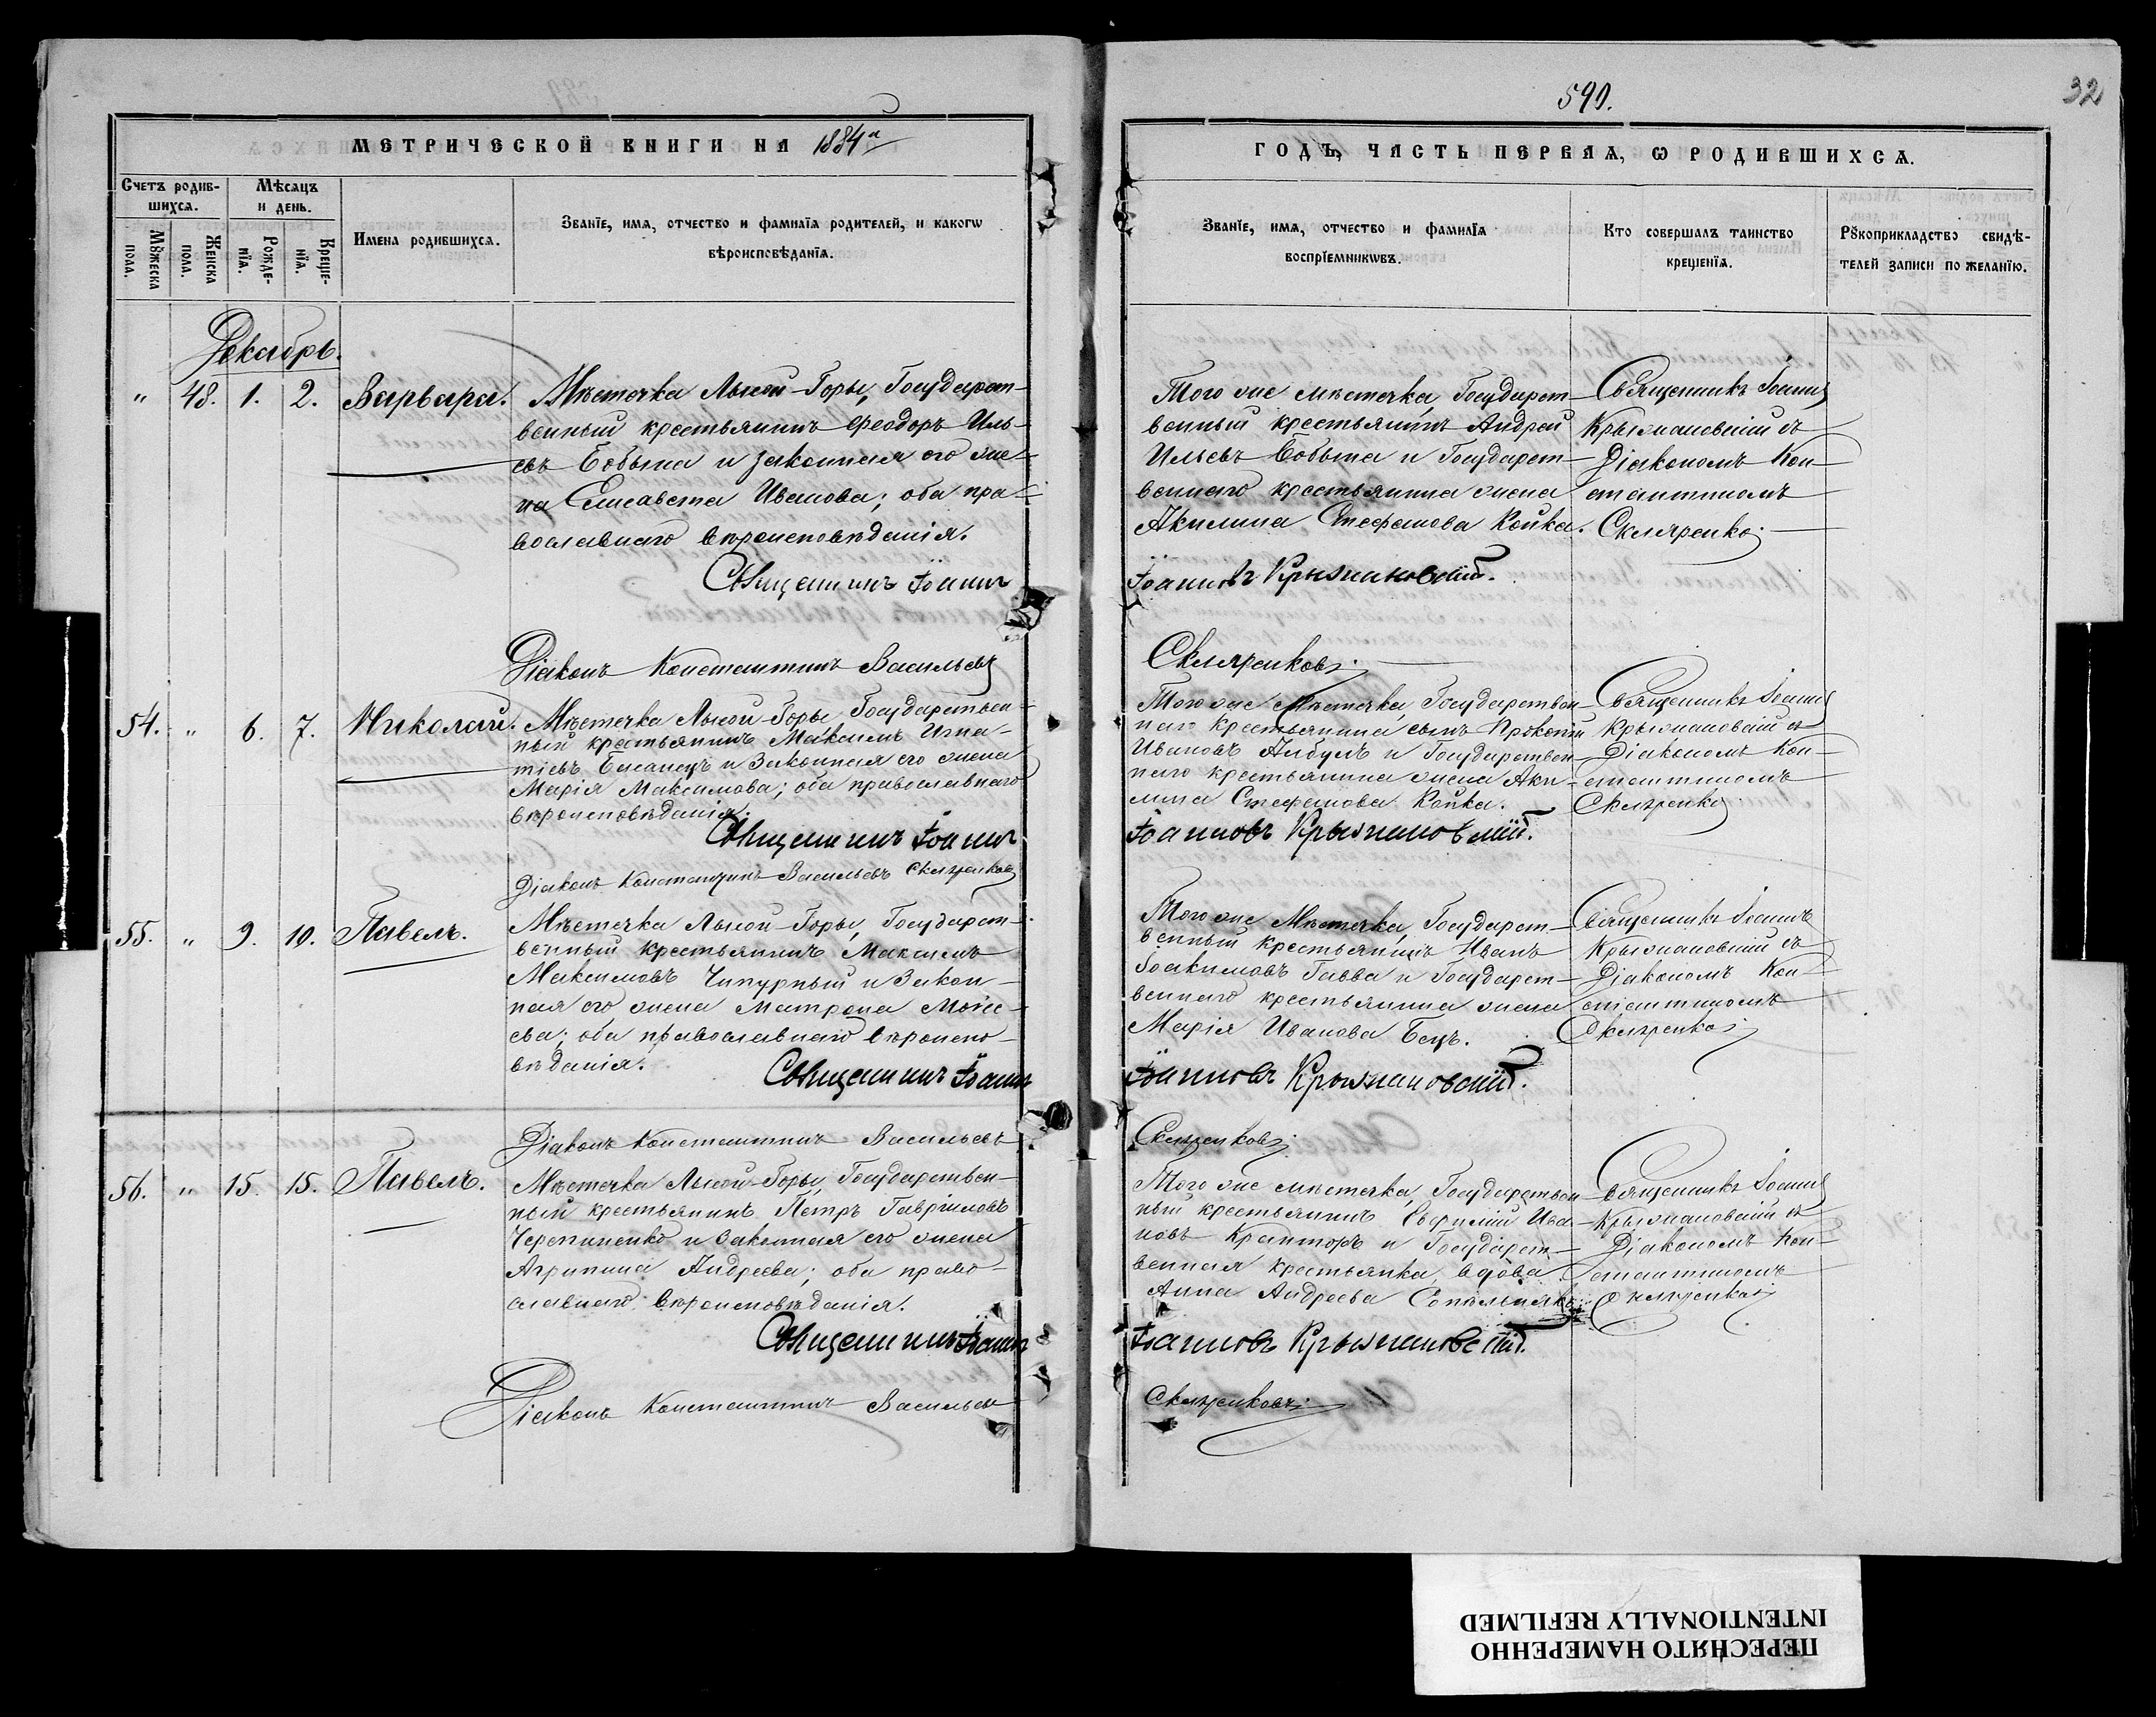 590.
32
МЕТРИЧЕСКОЙ КНИГИ НА 1884й
ГОДЪ, ЧАСТЬ ПЕРВАЯ, Ѡ РОДИВШИХСѦ.
Счетъ родив-
шихсѧ.
Мѣсѧцъ
и день.
Мꙋжеска
пола.
Женска
пола.
Рожде-
нїѧ.
Креще-
нїѧ.
Имена родившихсѧ.
Званїе, имѧ, отчество и фамилїѧ родителей, и какогѡ
вѣроисповѣданїѧ.
Званїе, имѧ, отчество и фамилїѧ
воспрїемникѡвъ.
Кто совершалъ таинство
крещенїѧ.
Рꙋкоприкладство свидѣ-
телей записи по желанїю.
Декабрь.
" 48. 1. 2. Варвара.
Мѣстечка Лысой-Горы, Государст-
венный крестьянинъ Феодоръ Иль-
евъ Бобына и законная его же-
на Елисавета Иванова; оба пра-
вославнаго вѣроисповѣданія.
Священникъ Іоаннъ
Діаконъ Константинъ Васильевъ
Того же мѣстечка, Государст-
венный крестьянинъ Андрей
Ильевъ Бобына и Государст-
веннаго крестьянина жена
Акилина Стефанова Койка.
Іоанновъ Крыжановскій.
Скляренковъ.
Священникъ Іоаннъ
Крыжановскій съ
Діакономъ Кон-
стантиномъ
Скляренко.
54. " 6. 7. Николай.
Мѣстечка Лысой-Горы, Государствен-
ный крестьянинъ Максимъ Игна-
тіевъ и Законная его жена
Марія Максимова; оба православнаго
вѣроисповѣданія.
Священникъ Іоаннъ
Діаконъ Константинъ Васильевъ Скляренковъ
Того же Мѣстечка, Государствен-
наго крестьянина сынъ Прокопій
Ивановъ и Государствен-
наго крестьянина жена Аки-
лина Стефанова Койка.
Іоанновъ Крыжановскій.
Священникъ Іоаннъ
Крыжановскій съ
Діакономъ Кон-
стантиномъ
Скляренко.
55. " 9. 10. Павелъ.
Мѣстечка Лысой-Горы, Государст-
венный крестьянинъ Максимъ
Максимовъ Чипурный и Закон-
ная его жена Матрона Моѵсе-
ева; оба православнаго вѣроиспо-
вѣданія.
Священникъ Іоаннъ
Діаконъ Константинъ Васильевъ
Того же Мѣстечка, Государст-
венный крестьянинъ Иванъ
Іоакимовъ Гавва и Государст-
веннаго крестьянина жена
Марія Иванова Бецъ.
Іоанновъ Крыжановскій.
Скляренковъ.
Священникъ Іоаннъ
Крыжановскій съ
Діакономъ Кон-
стантиномъ
Скляренко.
56. " 15. 15. Павелъ.
Мѣстечка Лысой-Горы, Государствен-
ный крестьянинъ Петръ Гавріиловъ
Черепиненко и Законная его жена
Агрипина Андреева; оба право-
славнаго вѣроисповѣданія.
Священникъ Іоаннъ
Діаконъ Константинъ Васильевъ
Того же мѣстечка, Государствен-
ный крестьянинъ Ива-
новъ и Государст-
венная крестьянка, вдова
Анна Андреева
Іоанновъ Крыжановскій.
Скляренковъ.
Священникъ Іоаннъ
Крыжановскій съ
Діакономъ Кон-
стантиномъ
Скляренко.
ПЕРЕСНЯТО НАМЕРЕННО
INTENTIONALLY REFILMED